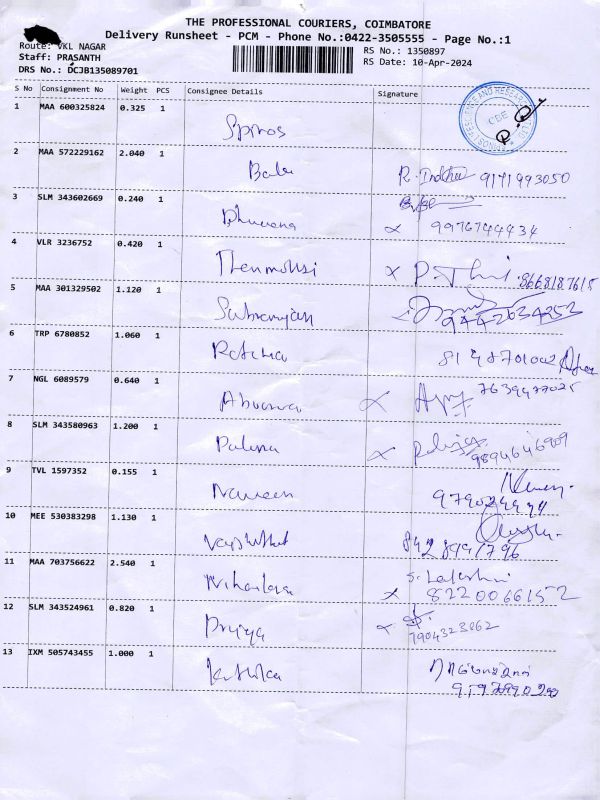 THE PROFESSIONAL COURIERS, COIMBATORE
Delivery Runsheet - PCM - Phone No.:0422-3505555 - Page No.:1
Route: VKL NAGAR
RS No.: 1350897
Staff: PRASANTH
RS Date: 10-Apr-2024
DRS No.: DCJB135089701
S No Consignment No Weight PCS Consignee Details Signature
1 MAA 600325824 0.325 1 Spinos
CDE
2 MAA 572229162 2.040 1 Babu 9171993050
3 SLM 343602669 0.240 1 Bhuvana
9976744434
4 VLR 3236752 0.420 1 Thenmozhi 8668187615
5 MAA 301329502 1.120 1 9442634252
6 TRP 6780852 1.060 1
7 NGL 6089579 0.640 1 7639477025
8 SLM 343580963 1.200 1 9894646909
9 TVL 1597352 0.155 1 Naveen
10 MEE 530383298 1.130 1
11 MAA 703756622 2.540 1
8220066152
12 SLM 343524961 0.820 1 Priya
7904323862
13 IXM 505743455 1.000 1